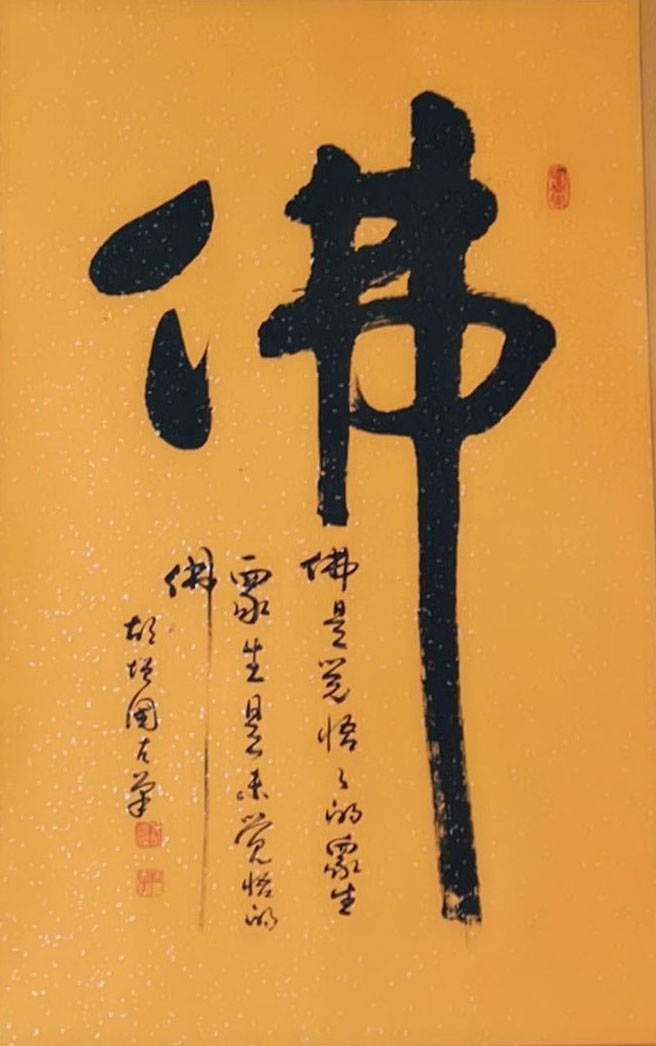 佛
佛是觉悟了的众生
而众生是未觉悟的
佛
胡增国左笔